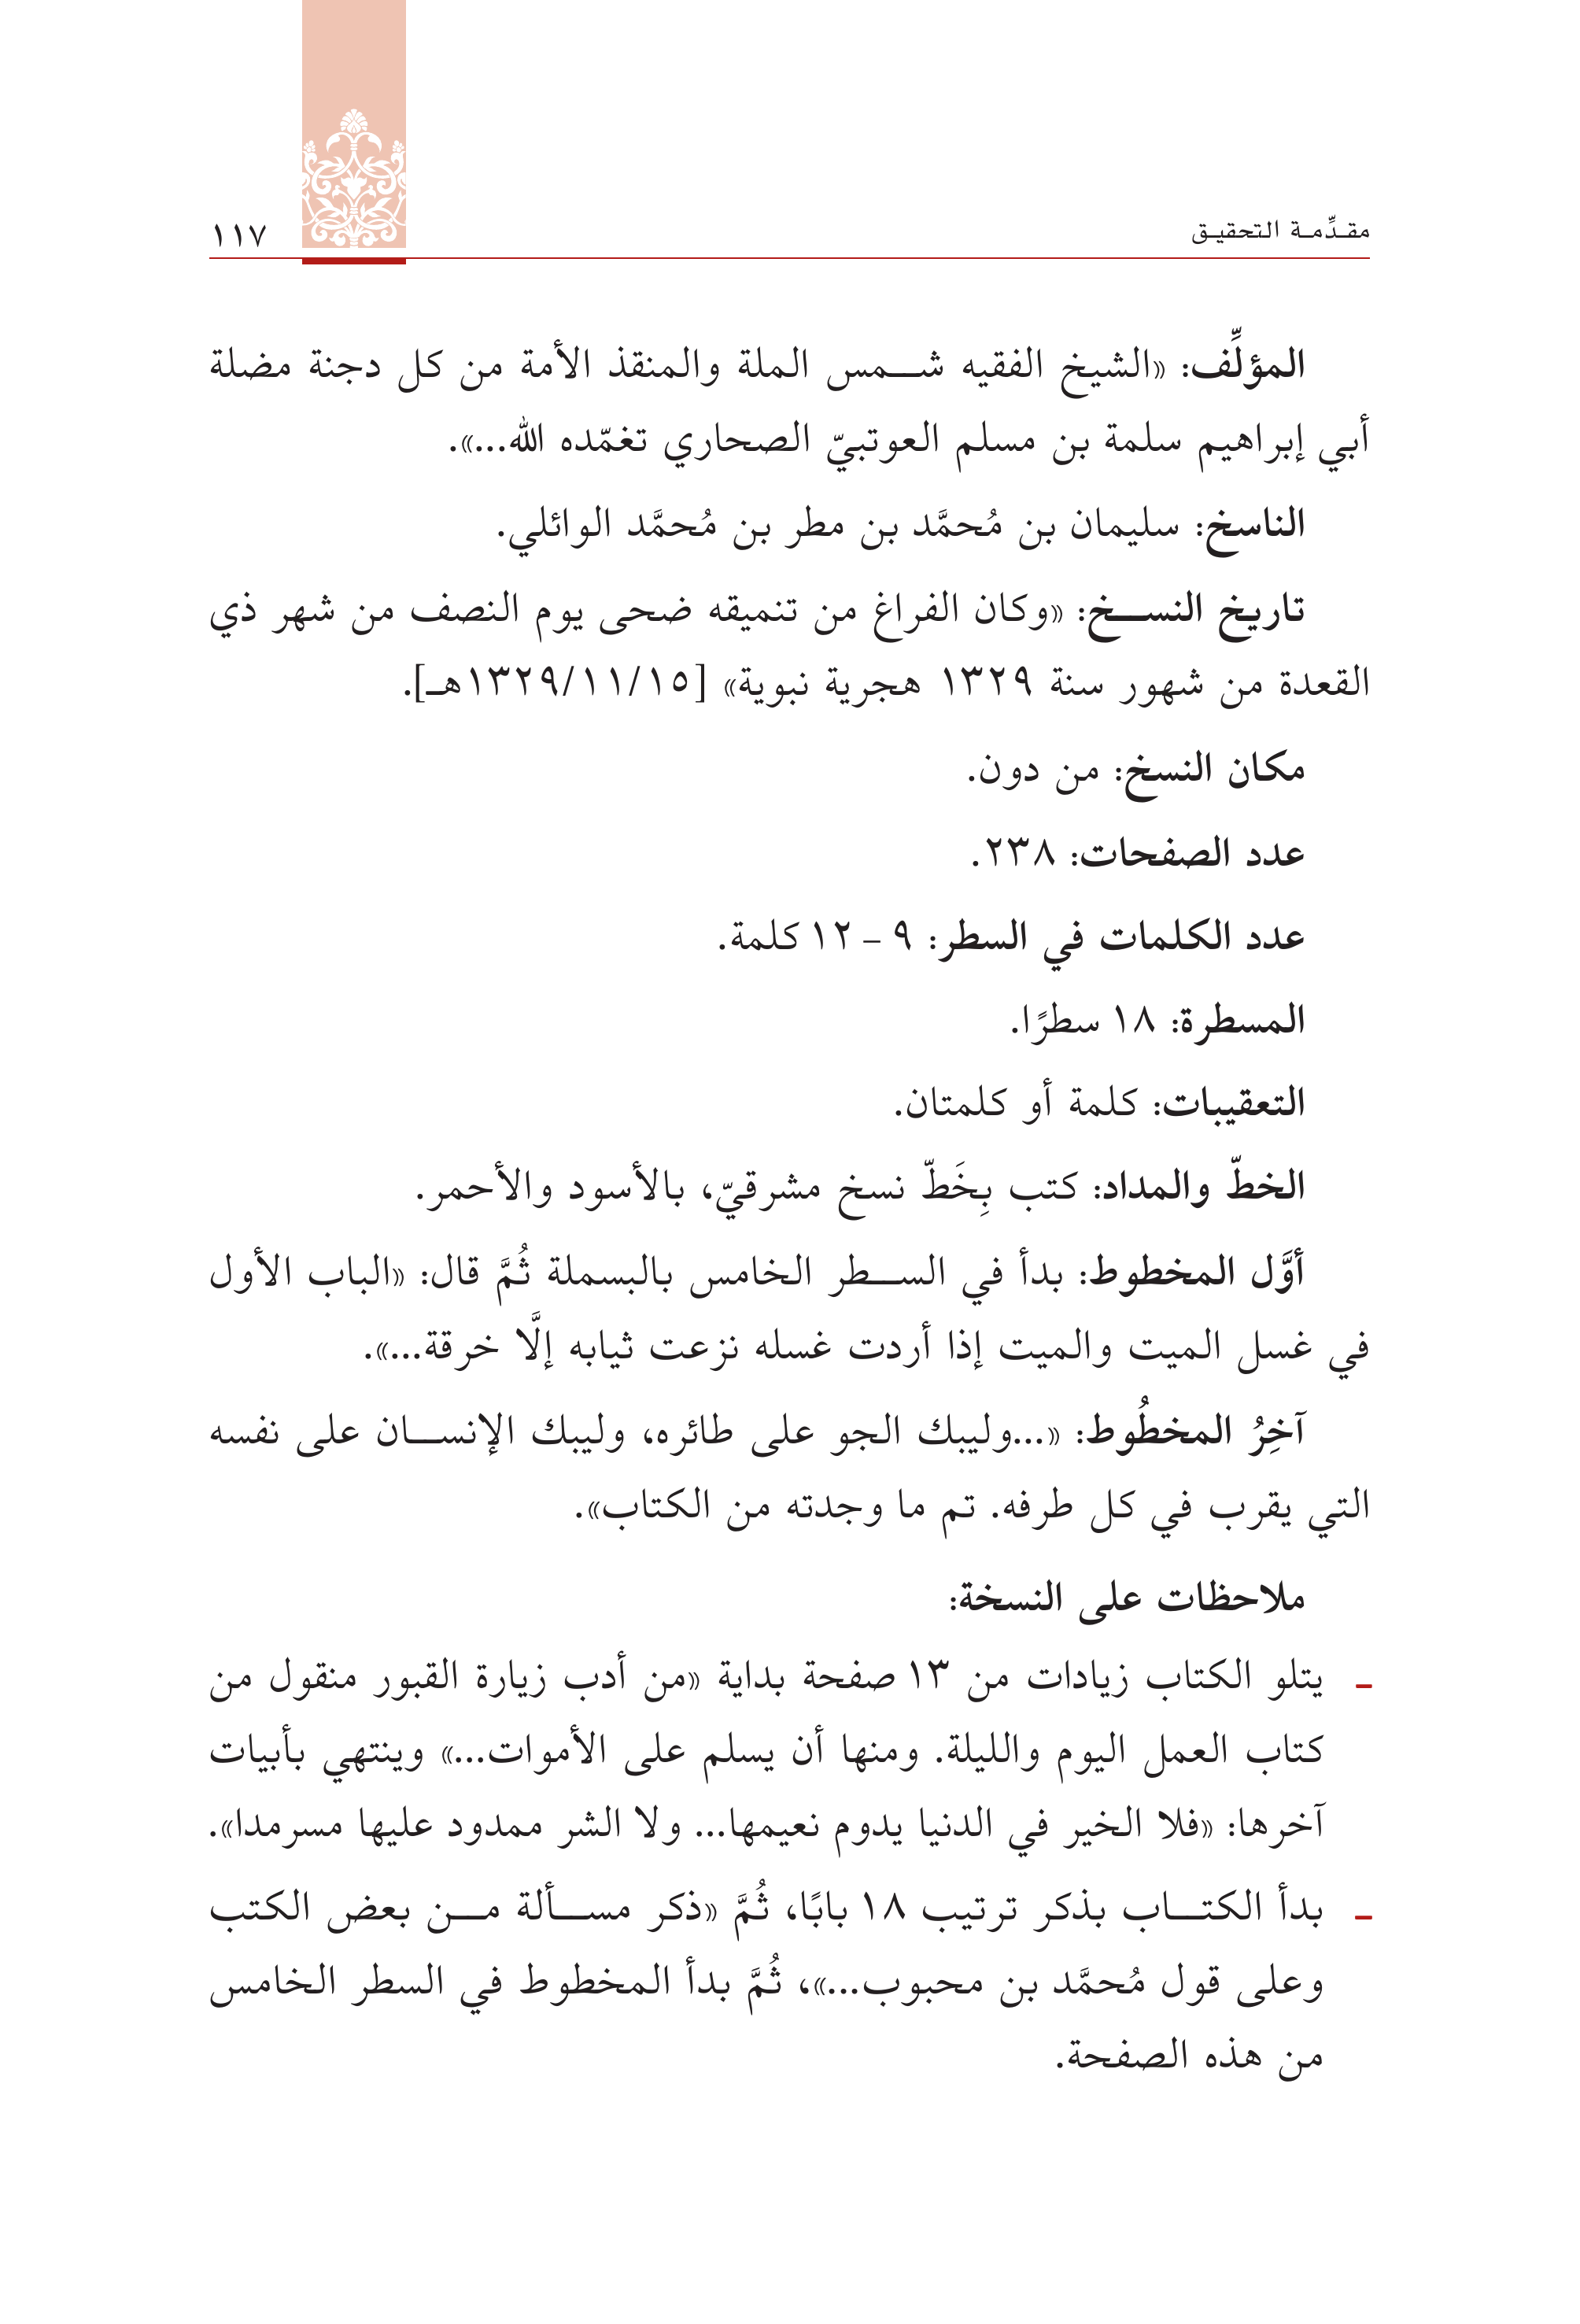 مقدِّمة التحقيق
١١٧
المؤلِّف: «الشيخ الفقيه شمس الملة والمنقذ الأمة من كل دجنة مضلة
أبي إبراهيم سلمة بن مسلم العوتبيّ الصحاري تغمّده الله...».
الناسخ: سليمان بن مُحمَّد بن مطر بن مُحمَّد الوائلي.
تاريخ النسخ: «وكان الفراغ من تنميقه ضحى يوم النصف من شهر ذي
القعدة من شهور سنة ١٣٢٩ هجرية نبوية» [١٣٢٩/١١/١٥هـ].
مكان النسخ: من دون.
عدد الصفحات: ٢٣٨.
عدد الكلمات في السطر: ٩ - ١٢ كلمة.
المسطرة: ١٨ سطرًا.
التعقيبات: كلمة أو كلمتان.
الخطّ والمداد: كتب بِخَطّ نسخ مشرقيّ، بالأسود والأحمر.
أوَّل المخطوط: بدأ في السطر الخامس بالبسملة ثُمَّ قال: «الباب الأول
في غسل الميت والميت إذا أردت غسله نزعت ثيابه إلَّا خرقة...».
آخِرُ المخطُوط: «...وليبك الجو على طائره، وليبك الإنسان على نفسه
التي يقرب في كل طرفه. تم ما وجدته من الكتاب».
ملاحظات على النسخة:
ـ يتلو الكتاب زيادات من ١٣ صفحة بداية «من أدب زيارة القبور منقول من
كتاب العمل اليوم والليلة. ومنها أن يسلم على الأموات...» وينتهي بأبيات
آخرها: «فلا الخير في الدنيا يدوم نعيمها... ولا الشر ممدود عليها مسرمدا».
ـ بدأ الكتاب بذكر ترتيب ١٨ بابًا، ثُمَّ «ذكر مسألة من بعض الكتب
وعلى قول مُحمَّد بن محبوب...»، ثُمَّ بدأ المخطوط في السطر الخامس
من هذه الصفحة.